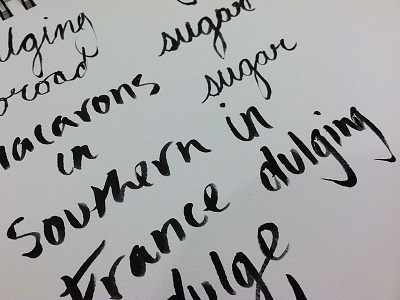 ulging sugar
broad sugar
macarons
in
Southern in
France dulging
dulge